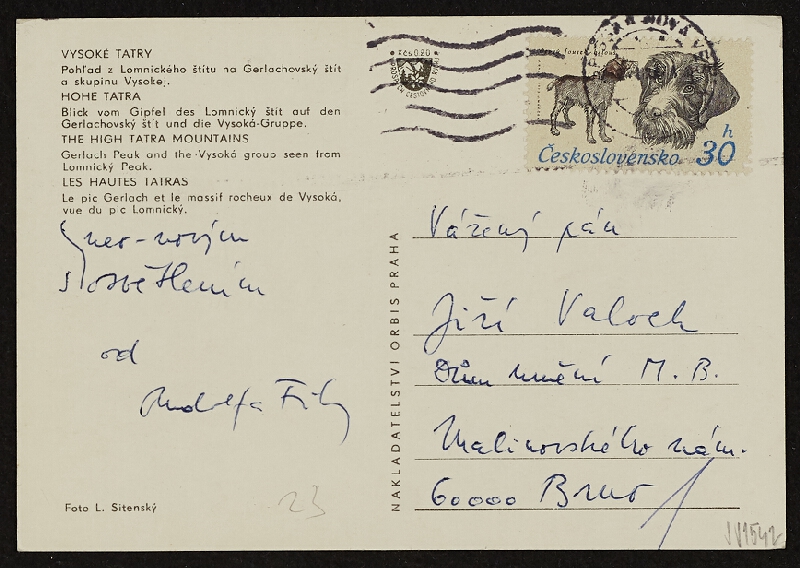 VYSOKÉ TATRY
Pohľad z Lomnického štítu na Gerlachovský štít
a skupinu Vysokej.
HOHE TATRA
Blick vom Gipfel des Lomnický štít auf den
Gerlachovský štít und die Vysoká-Gruppe.
THE HIGH TATRA MOUNTAINS
Gerlach Peak and the Vysoká group seen from
Lomnický Peak.
LES HAUTES TATRAS
Le pic Gerlach et le massif rocheux de Vysoká,
vue du pic Lomnický.
S neo-novým
posvětlením
od
Rudolfa Fily
Foto L. Sitenský
23
NAKLADATELSTVÍ ORBIS PRAHA
Kčs 0.20
Československo 30 h
Vážený pán
Jiří Valoch
Dům umění M. B.
Malinovského nám.
60000 Brno
JV1542